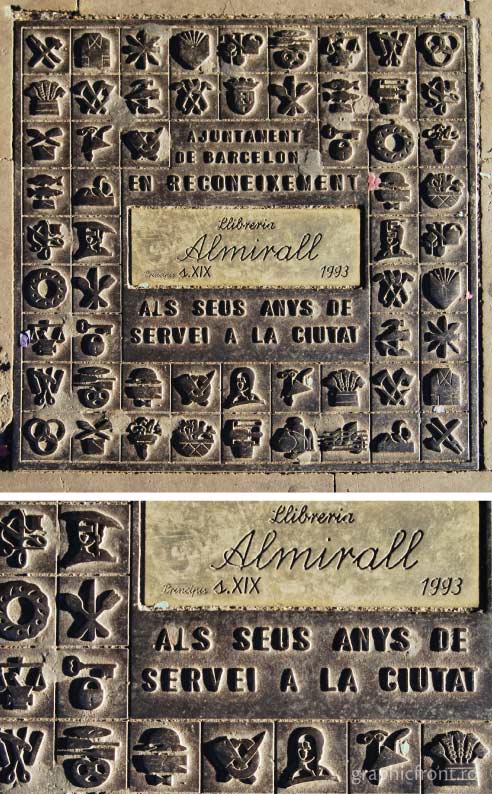 AJUNTAMENT
DE BARCELON
EN RECONEIXEMENT
Llibreria
Almirall
Principis s.XIX 1993
ALS SEUS ANYS DE
SERVEI A LA CIUTAT
Llibreria
Almirall
Principis s.XIX 1993
ALS SEUS ANYS DE
SERVEI A LA CIUTAT
graphicfront.ro